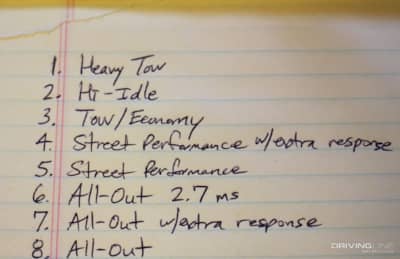 1. Heavy Tow
2. Hi-Idle
3. Tow/Economy
4. Street Performance w/extra response
5. Street Performance
6. All-Out 2.7 ms
7. All-Out w/extra response
8. All-Out
DRIVINGLINE